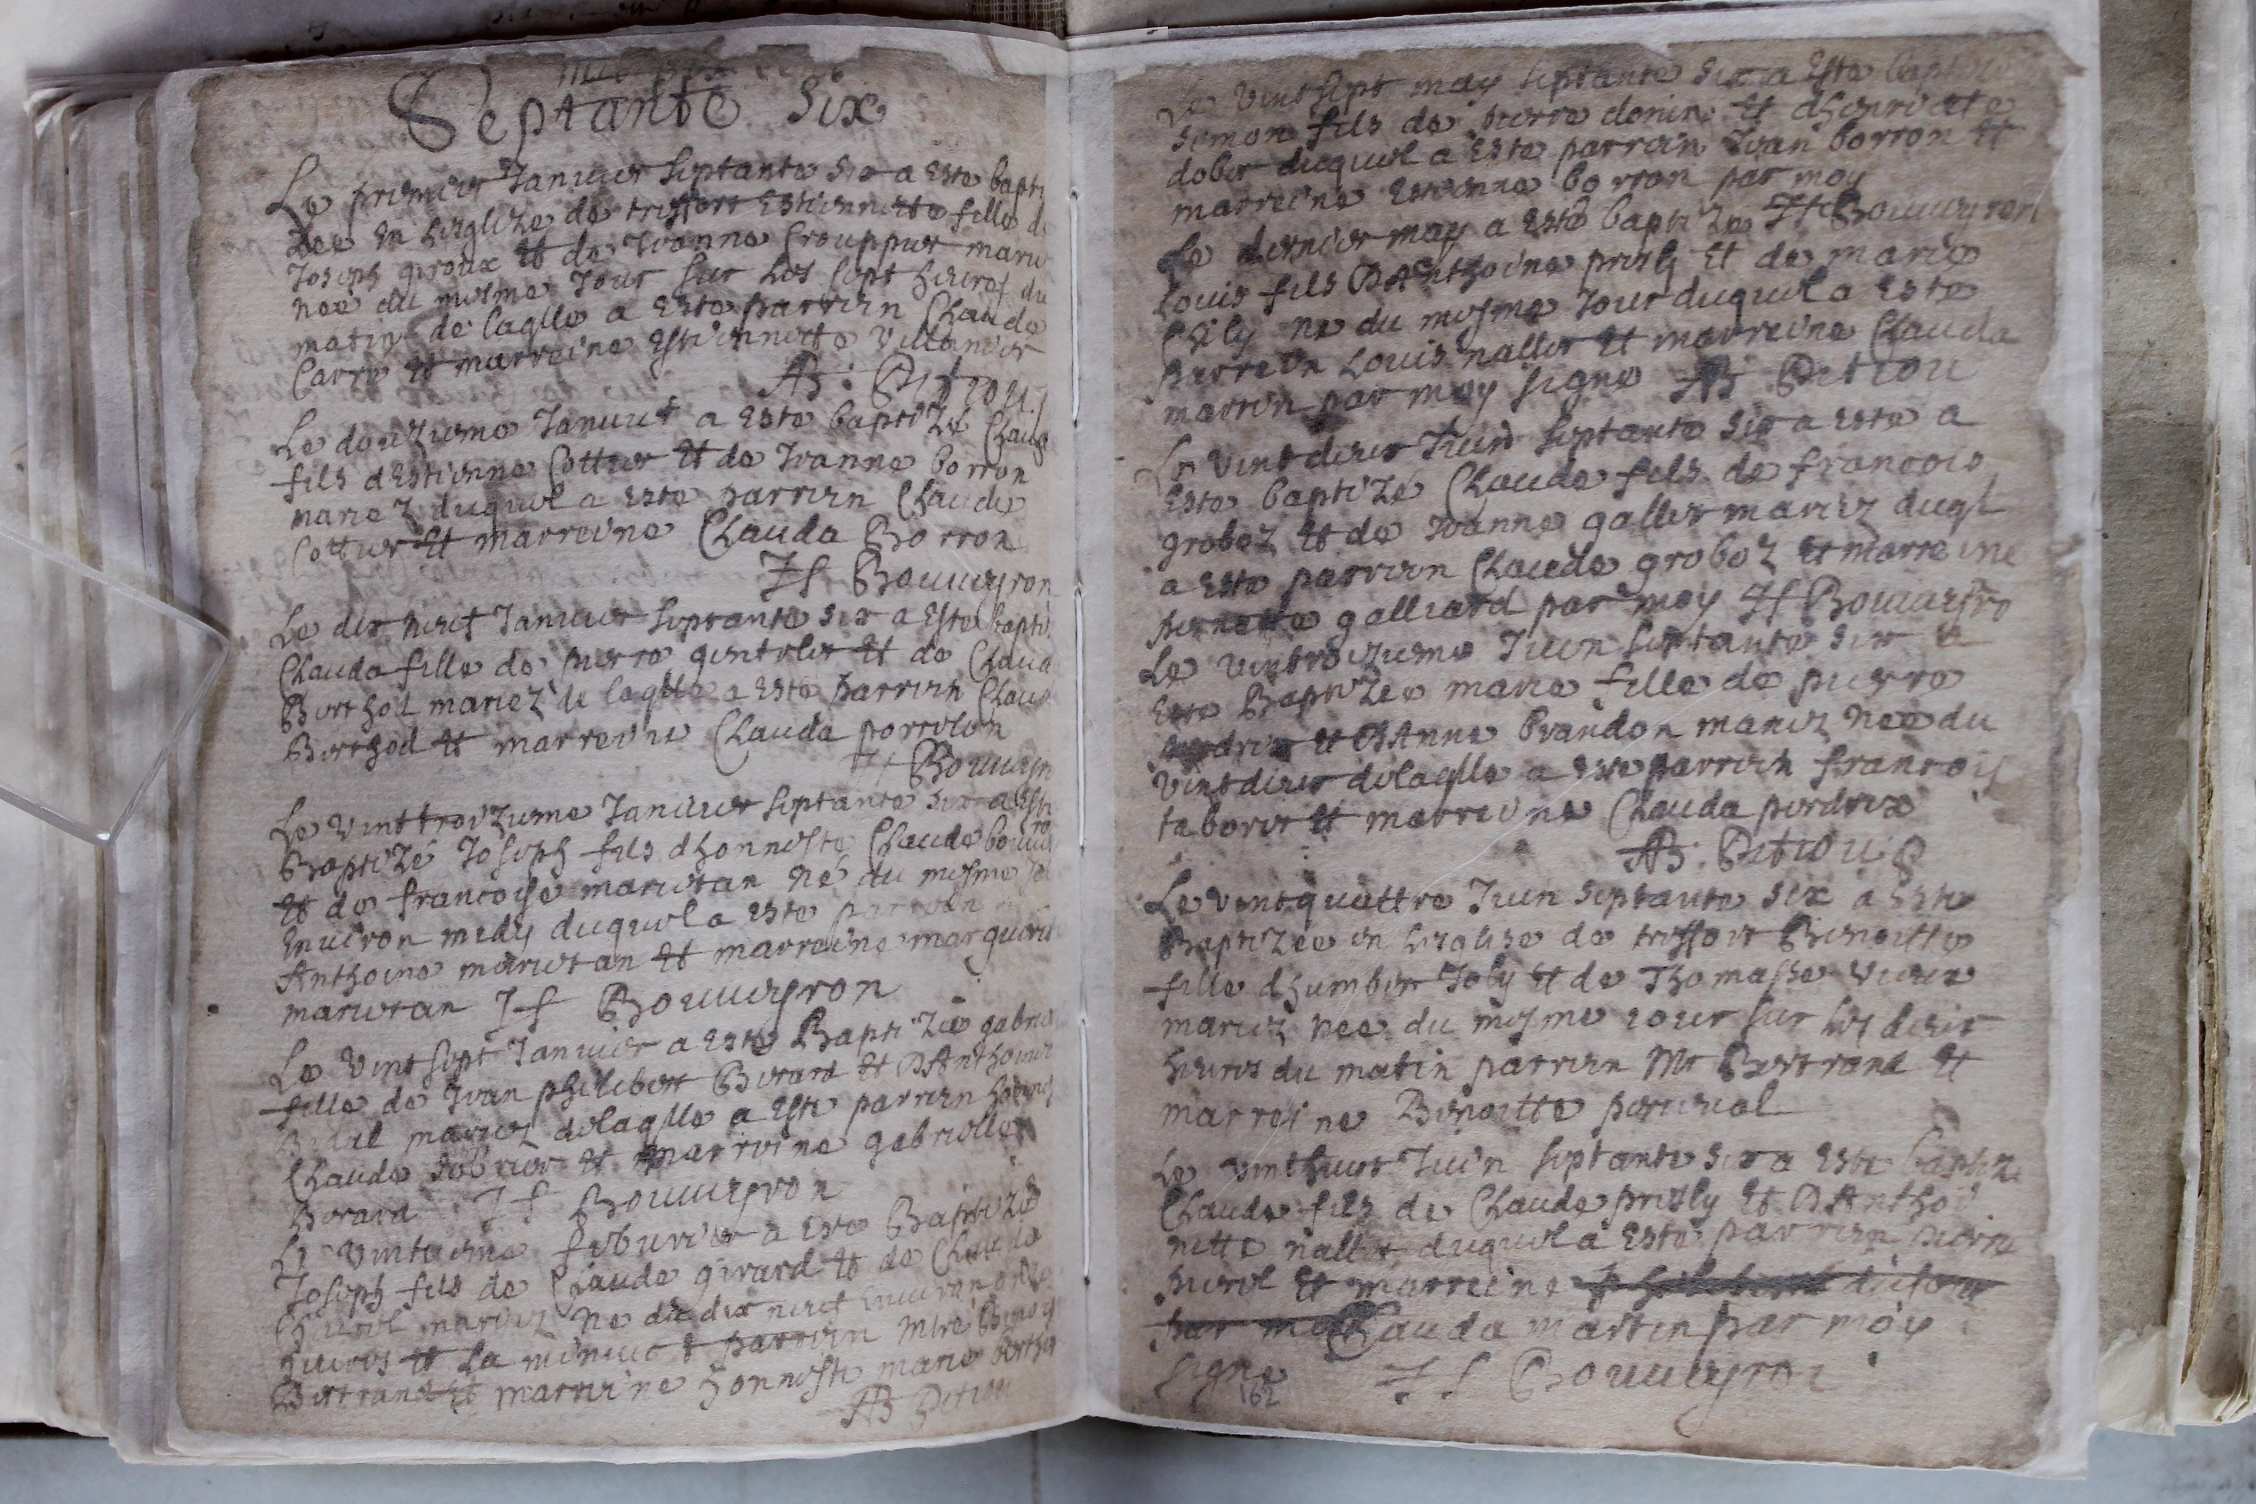 Septante Six
Le premier Janvier septante six a este bapti
zee en leglize de treffort Estiennette fille de
Joseph giroux et de Jeanne Crouppet marie
nee du mesme Jour sur les sept heures du
matin de laqlle a este parrein Claude
Carry et marreine Estiennette
AB: Petiou
Le douzieme Janvier a este baptizé Claude
fils dEstienne Cottier et de Jeanne borron
mariez duquel a este parrein Claude
Cottier et marreine Clauda Borron
Jf Bouveyron
Le dix neuf Janvier septante six a este bapti
Clauda fille de pierre gentelet et de Claud
Berthod mariez de laqlle a este parrein Claud
Berthod et marreine Clauda
Jf Bouveyr
Le vint troizieme Janvier septante six a este
Baptizé Joseph fils dhonneste Claude bouvey
et de francoise marietan né du mesme Jo
Environ midy duquel a este parrein
Anthoine marietan et marreine marguerit
marietan Jf Bouveyron
Le vint sept Janvier a este Baptizee gabrie
fille de Jean philibert Berard et DAnthoine
mariez delaqlle a este parrein
Claude et marreine gabrielle
Berard Jf Bouveyron
Le vintieme feburier a este Baptizé
Joseph fils de Claude girard et de Claude
mariez Ne du dix neuf environ
heures et la minuit parrein Mre Benoit
Bertrand et marreine honneste marie berthe
AB Petiou
Le vintsept may septante six a este baptize
Simon fils de pierre donin et dhenriette
dobet duquel a este parrein Jean borron et
marreine Estienne borron par moy
Jf Bouveyron
Le dernier may a este baptizé
Louis fils DAnthoine prely et de marie
né du mesme Jour duquel a este
parrein Louis nallet et marreine Clauda
martin par moy signe AB Petiou
Le vint deux Juin septante six a este a
este baptizé Claude fils de francois
groboz et de Jeanne gallet mariez duql
a este parrein Claude groboz et marreine
pernette galliard par moy Jf Bouveyro
Le vintroizieme Juin septante six a
este Baptizee marie fille de pierre
perdrix et DAnne brandon mariez nee du
vint deux delaqlle a este parrein francois
taboret et marreine Clauda perdrix
AB. Petiou
Le vint quattre Juin septante six a este
Baptizee en leglise de treffort Benoitte
fille dhumbert Joly et de Thomasse vieux
mariez nee du mesme jour sur les deux
heures du matin parrein Mr Bertrand et
marreine Benoitte perceval
Le vinthuit Juin septante six a este baptizé
Claude fils de Claude prely et DAnthoi
nette nallet duquel a este parrein pierre
perrel et marreine
Clauda martin par moy
signe Jf Bouveyron
162